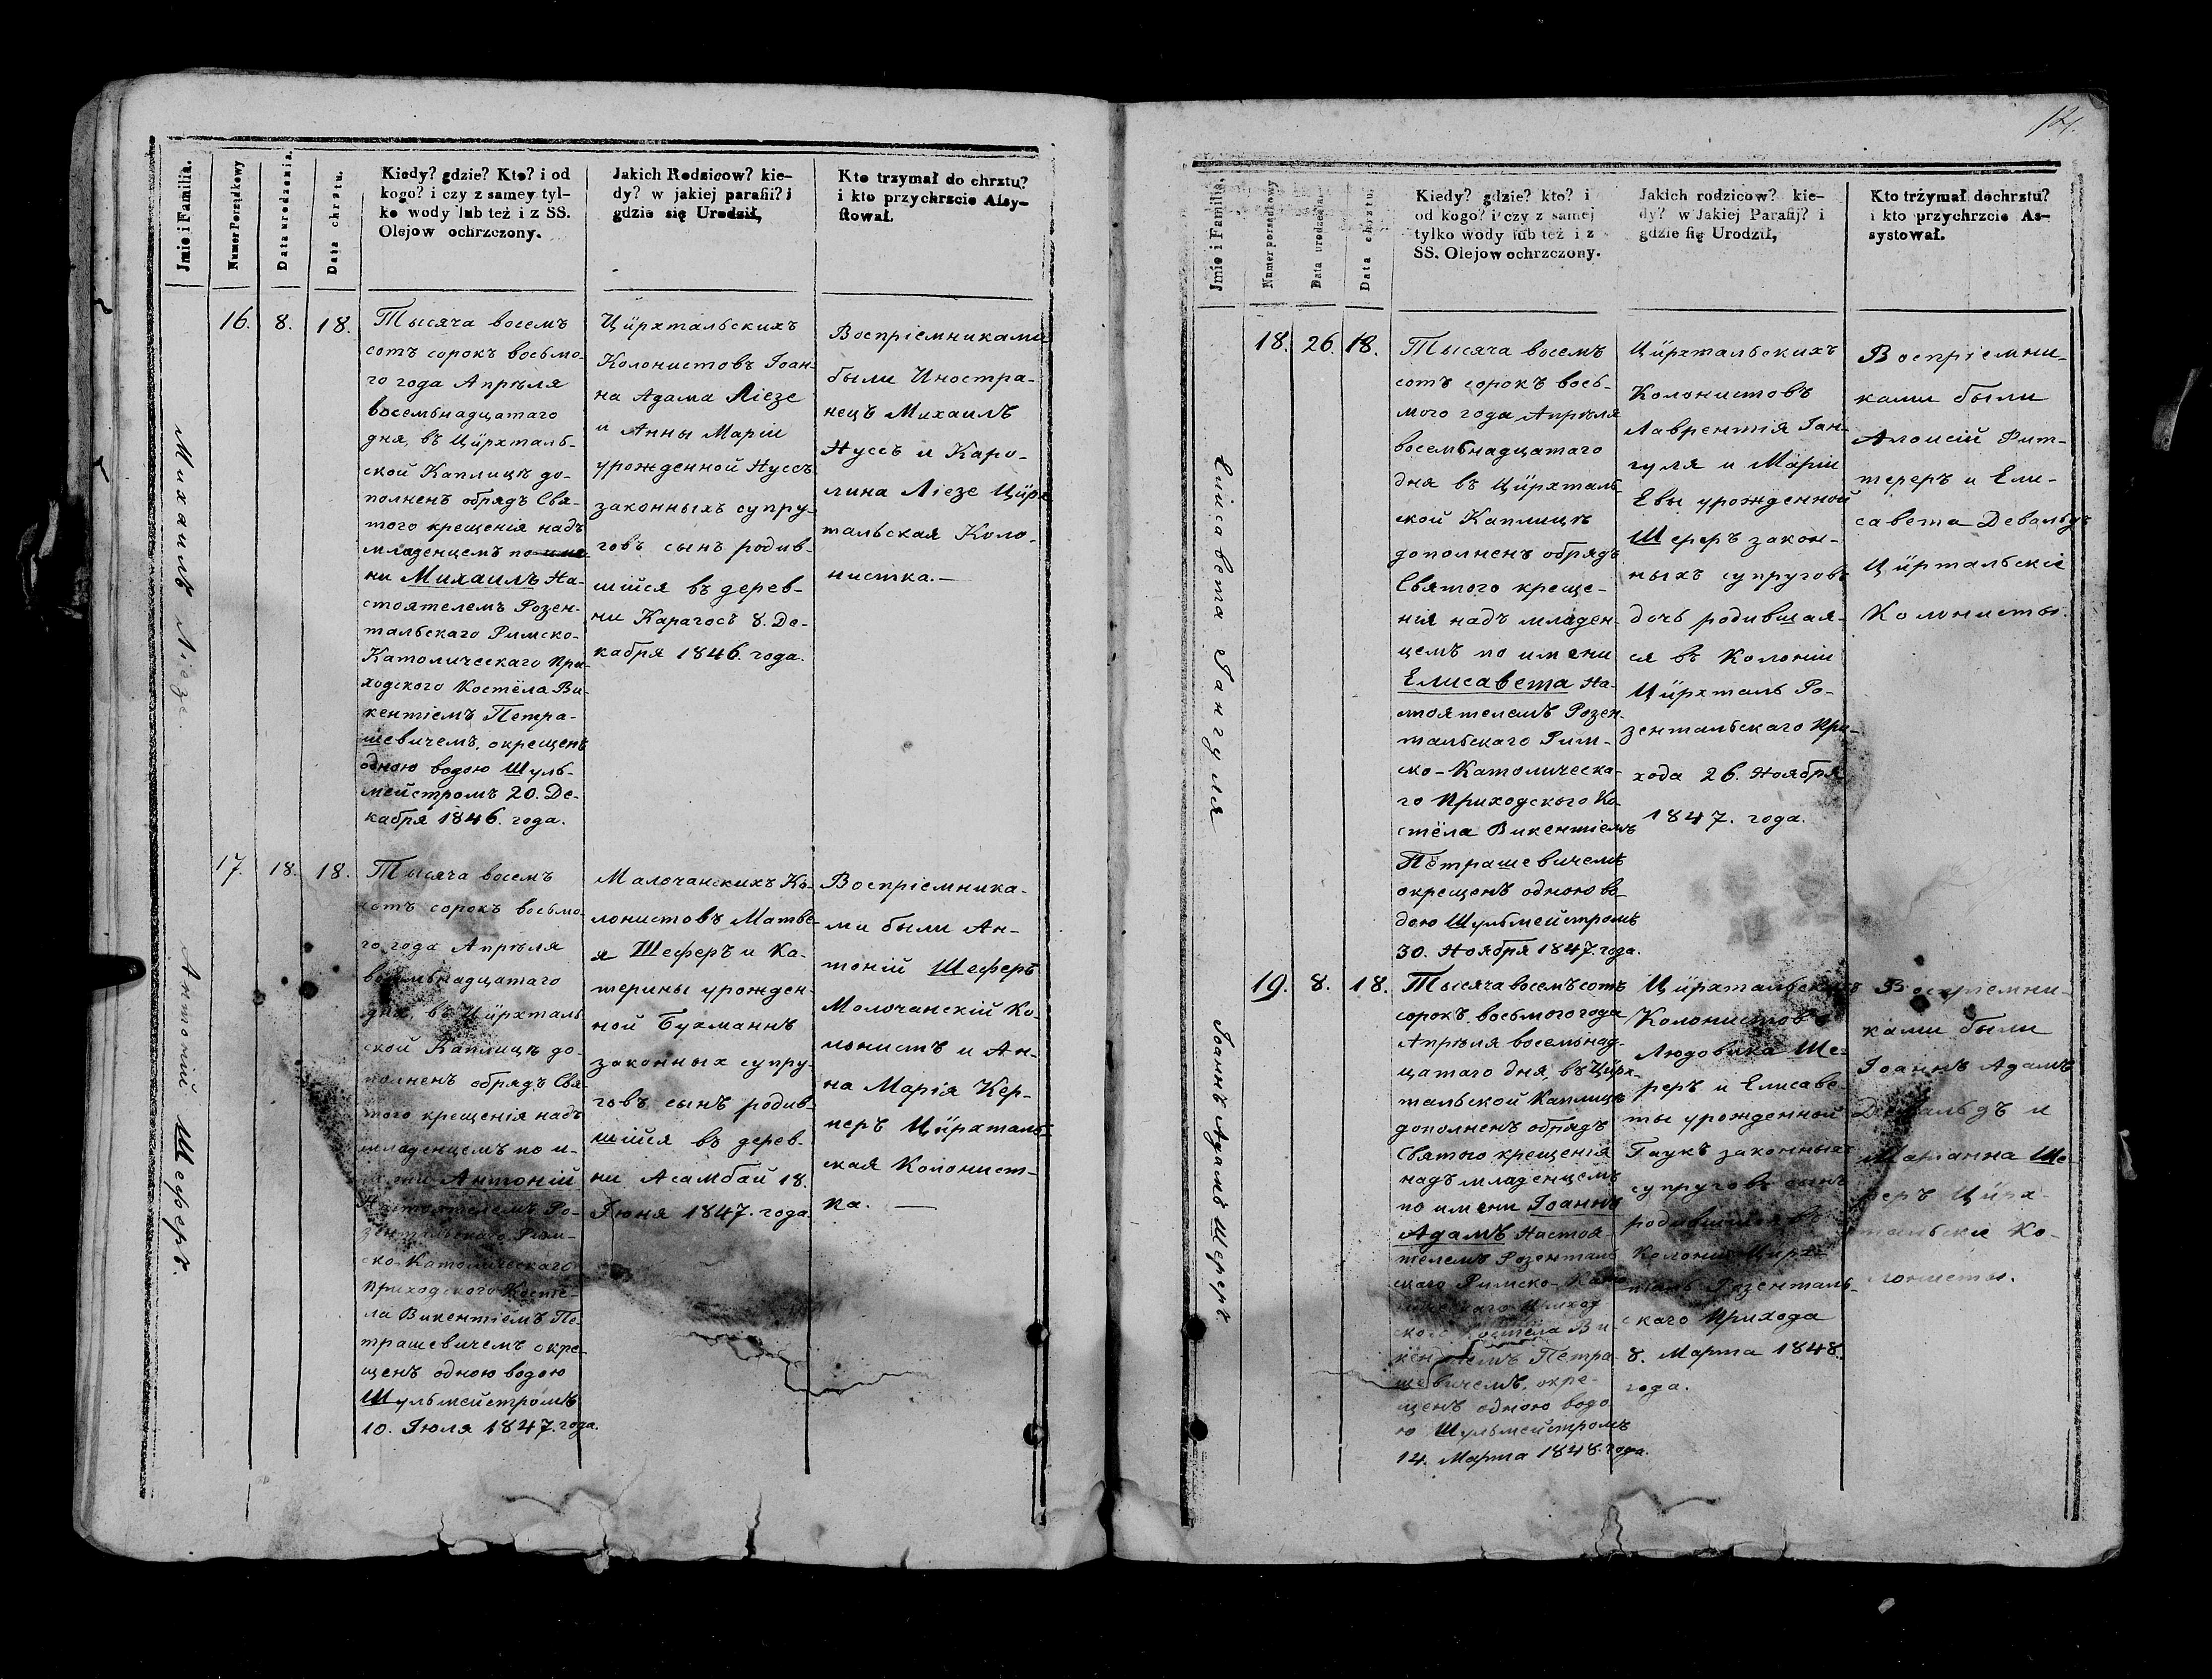 12.
Jmie i Familia.
Numer Porządkowy
Data urodzenia.
Data chrztu.
Kiedy? gdzie? Kto? i od
kogo? i czy z samey tyl-
ko wody lub też i z SS.
Olejow ochrzczony.
Jakich Rodzicow? kie-
dy? w jakiej parafii? i
gdzie się Urodził,
Kto trzymał do chrztu?
i kto przychrzcie Assy-
stował.
Михаилъ Лiезе.
16.
8.
18.
Тысяча восемъ
сотъ сорокъ восьмо-
го года Апрѣля
восемьнадцатаго
дня, въ Цирхталь-
ской Каплицѣ до-
полненъ обрядъ Свя-
того крещенiя надъ
младенцемъ по име-
ни Михаилъ На-
стоятелемъ Розен-
тальскаго Римско-
Католическаго При-
ходского Костёла Ви-
кентiемъ Петра-
шевичемъ, окрещенъ
одною водою Шуль-
мейстромъ 20. Де-
кабря 1846. года.
Цирхтальскихъ
Колонистовъ Iоан-
на Адама Лiезе
и Анны Марiи
урожденной Нуссъ
законныхъ супру-
говъ сынъ родив-
шiйся въ дерев-
ни Карагосъ 8. Де-
кабря 1846. года.
Воспрiемниками
были Иностра-
нецъ Михаилъ
Нуссъ и Каро-
лина Лiезе Цирх
тальская Коло-
нистка.—
Антонiй Шеферъ.
17.
18.
18.
Тысяча восемъ
сотъ сорокъ восьмо-
го года Апрѣля
восемьнадцатаго
дня, въ Цирхталь
ской Каплицѣ до-
полненъ обрядъ Свя-
того крещенiя надъ
младенцемъ по и-
мени Антонiй
Настоятелемъ Ро-
зентальскаго Рим-
ско-Католическаго
Приходского Костё-
ла Викентiемъ Пе-
трашевичемъ окре-
щенъ одною водою
Шульмейстромъ
10. Iюля 1847. года.
Малочанскихъ Ко-
лонистовъ Матве-
я Шеферъ и Ка-
терины урожден-
ной Бухманнъ
законных супру-
говъ сынъ родив-
шiйся въ дерев-
ни Асамбай 18.
Iюня 1847. года
Воспрiемника-
ми были Ан-
тонiй Шеферъ
Молочанскiй Ко-
лонистъ и Ан-
на Марiя Кер-
неръ Цирхталь-
ская Колонист-
ка. —
Jmie i Familia.
Numer porządkowy
Data urodzenia.
Data chrztu.
Kiedy? gdzie? kto? i
od kogo? i czy z samej
tylko wody lub też i z
SS. Olejow ochrzczony.
Jakich rodzicow? kie-
dy? w Jakiej Parafij? i
gdzie się Urodził,
Kto trżymał dochrztu?
i kto przychrzcie As-
systował.
Елисавета Гангуля
18.
26.
18.
Тысяча восемъ
сотъ сорокъ вось-
мого года Апрѣля
восемьнадцатаго
дня въ Цирхталь-
ской Каплицѣ
дополненъ обрядъ
Святого креще-
нiя надъ младен-
цемъ по имени
Елисавета На-
стоятелемъ Розен-
тальскаго Рим-
ско-Католическа-
го Приходского Ко-
стёла Викентiемъ
Петрашевичемъ
окрещенъ одною во-
дою Шульмейстромъ
30. Ноября 1847. года.
Цирхтальскихъ
Колонистовъ
Лаврентiя Ган-
гуля и Марiи
Евы урожденной
Шереръ закон-
ныхъ супруговъ
дочь родившая-
ся въ Колонiи
Цирхталь Ро-
зентальскаго При-
хода 26. Ноября
1847. года.
Воспрiемни-
ками были
Алоисiй Рит-
тереръ и Ели-
савета Девальдъ
Циртальскiе
Колонисты.
Iоаннъ Адамъ Шереръ.
19.
8.
18.
Тысяча восемъ сотъ
сорокъ восьмого года
Апрѣля восемьнад-
цатаго дня, въ Цирх-
тальской Каплицѣ
дополненъ обрядъ
Святого крещенiя
надъ младенцемъ
по имени Iоаннъ
Адамъ Настоя-
телемъ Розенталь
скаго Римско-Като
Приход
ского Костёла Ви
кентiемъ Петра-
шевичемъ, окре-
щенъ одною водо
ю Шульмейстромъ
14. Марта 1848. года.
Цирхтальскихъ
Колонистовъ
Людовика Ше-
реръ и Елисаве-
ты урожденной
Гаукъ законныхъ
супруговъ сынъ
родившiйся въ
Колонiи Цирх-
таль Розенталь-
скаго Прихода
8. Марта 1848.
года.
Воспрiемни-
ками были
Iоаннъ Адамъ
Девальдъ и
Марiанна Ше-
реръ Цирх-
тальскiе Ко-
лонисты.